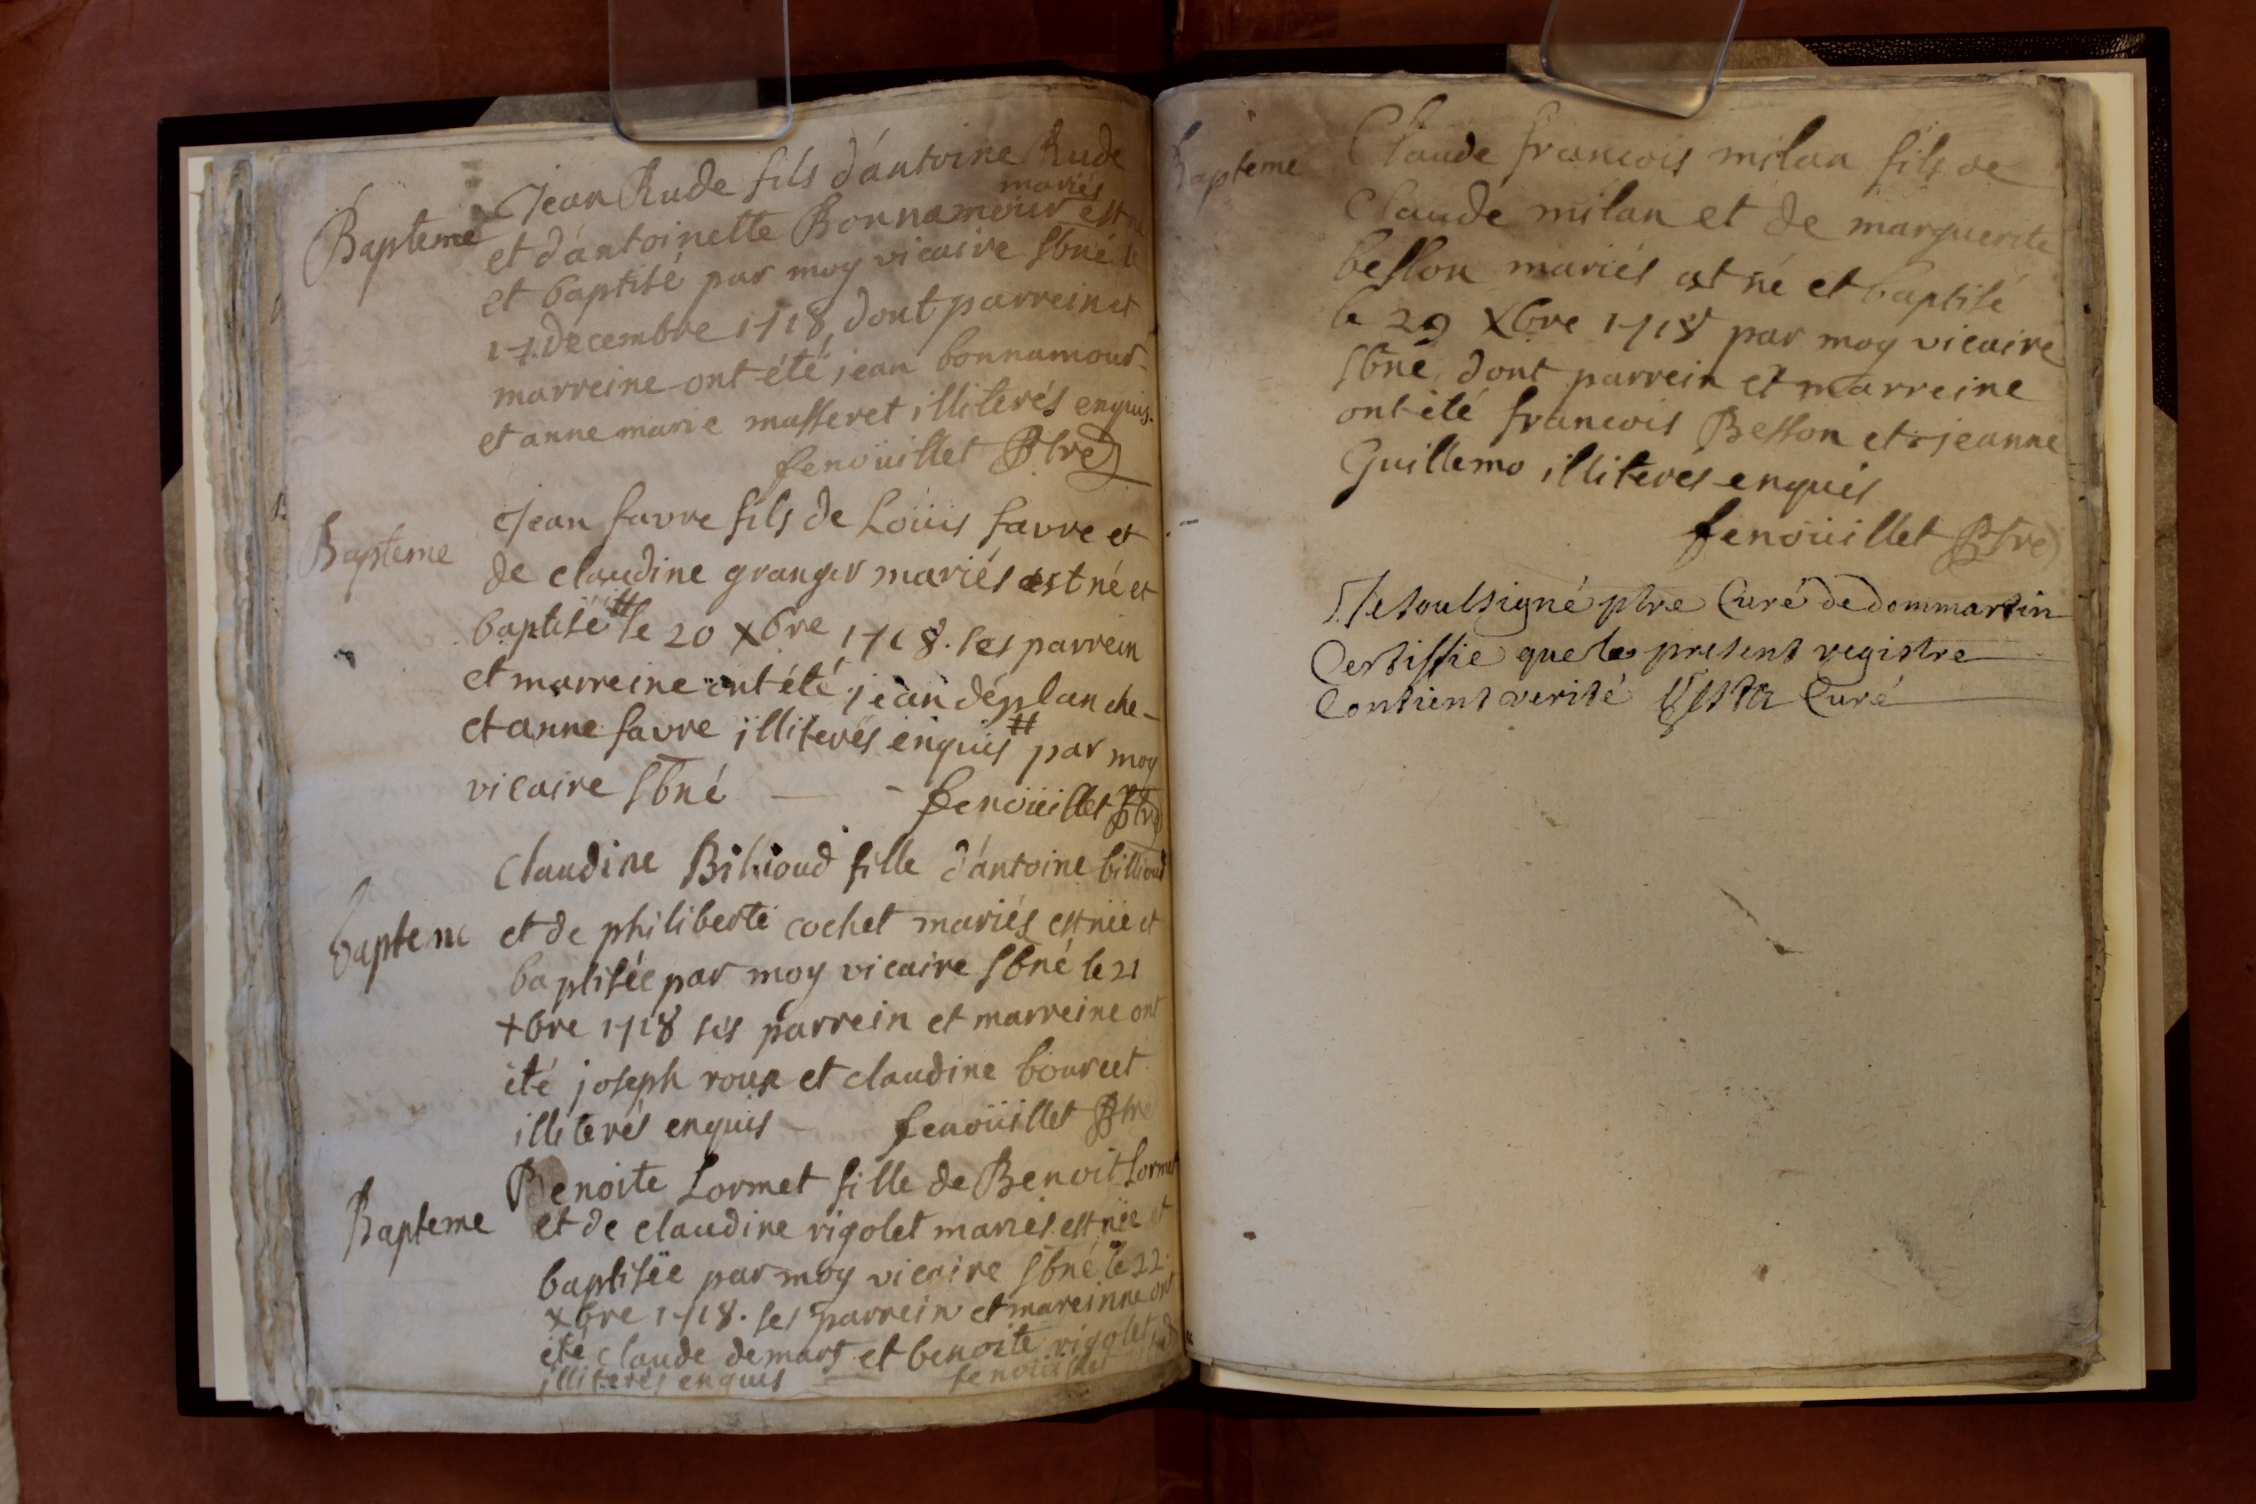 Bapteme
Jean Rude fils d'antoine Rude
mariés
et d'antoinette Bonnamour est né
et baptisé par moy vicaire sbné le
17. decembre 1718, dont parrein et
marreine ont été jean bonnamour
et anne marie masseret illiterés enquis.
fenoüillet Ptre
Bapteme
Jean favre fils de Loüis favre et
de claudine granger mariés est né et
baptisé # le 20 xbre 1718. ses parrein
et marreine ont été jean déplanche
et anne favre illiterés enquis # par moy
vicaire sbné fenoüillet Ptre
bapteme
Claudine Billioud fille d'antoine billioud
et de philiberte cochet mariés est née et
baptisée par moy vicaire sbné le 21
xbre 1718 ses parrein et marreine ont
été joseph roux et claudine bourcet
illiterés enquis fenoüillet Ptre
Bapteme
Benoite Lormet fille de Benoit Lormet
et de claudine rigolet mariés est née et
baptisée par moy vicaire sbné le 22
xbre 1718. ses parrein et mareinne ont
été claude demars et benoite rigolet
illiterés enquis fenoüillet
Bapteme
Claude francois milan fils de
Claude milan et de marguerite
besson mariés est né et baptisé
le 29 xbre 1718 par moy vicaire
sbné, dont parrein et marreine
ont été francois Besson et jeanne
Guillemo illiterés enquis
fenoüillet Ptre
Je soulsigné ptre Curé de dommartin
Certiffie que le present registre
Contient verité Curé